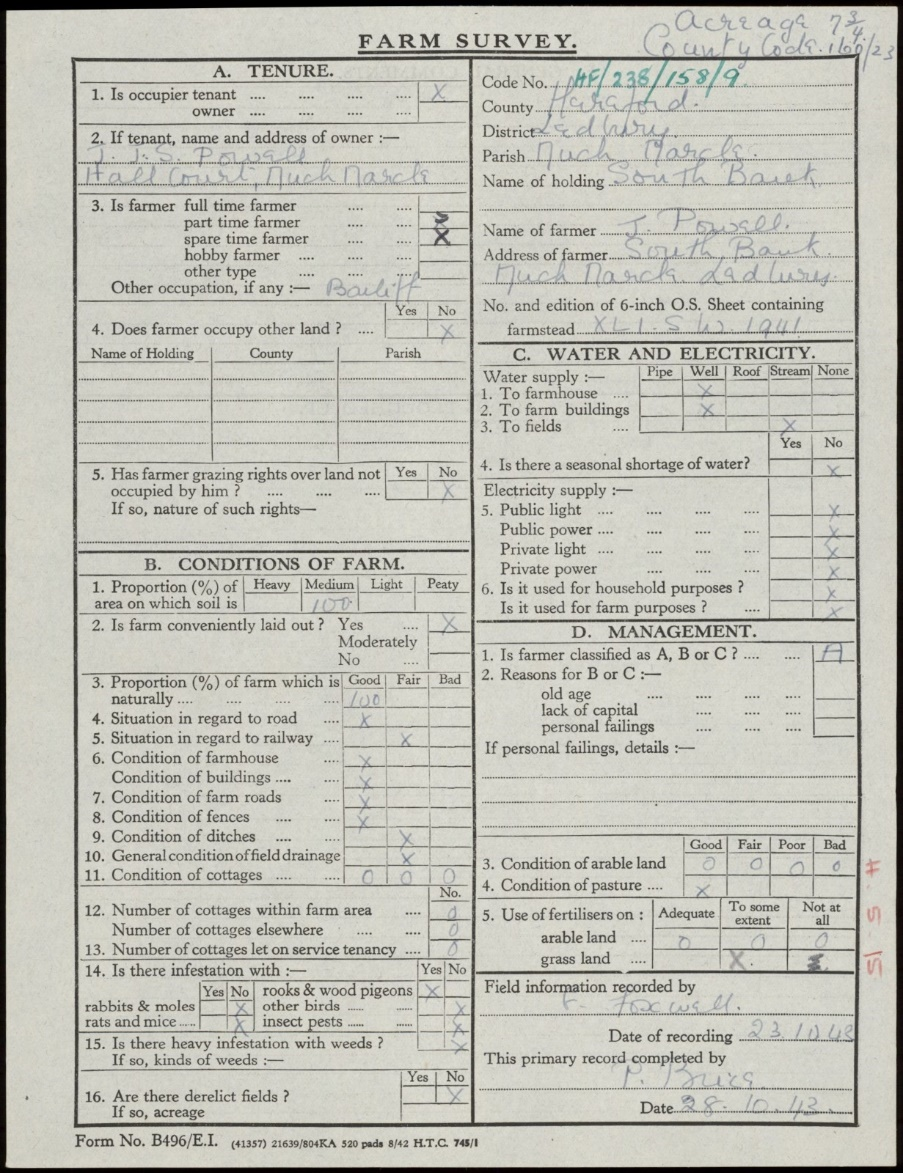 Acreage 7 3/4
County Code. 160/23
FARM SURVEY.
A. TENURE.
1. Is occupier tenant .... .... .... .... X
owner .... .... .... ....
2. If tenant, name and address of owner :—
J. T. S. Powell
Hall Court, Much Marcle
3. Is farmer full time farmer .... ....
part time farmer .... ....
spare time farmer .... .... X
hobby farmer .... .... ....
other type .... .... ....
Other occupation, if any :— Bailiff
Yes No
4. Does farmer occupy other land ? .... X
Name of Holding County Parish
5. Has farmer grazing rights over land not Yes No
occupied by him ? .... .... .... X
If so, nature of such rights—
B. CONDITIONS OF FARM.
1. Proportion (%) of Heavy Medium Light Peaty
area on which soil is 100
2. Is farm conveniently laid out ? Yes .... X
Moderately
No ....
3. Proportion (%) of farm which is Good Fair Bad
naturally .... .... .... .... 100
4. Situation in regard to road .... X
5. Situation in regard to railway .... X
6. Condition of farmhouse .... X
Condition of buildings .... .... X
7. Condition of farm roads .... X
8. Condition of fences .... .... X
9. Condition of ditches .... .... X
10. General condition of field drainage X
11. Condition of cottages .... .... 0 0 0
No.
12. Number of cottages within farm area .... 0
Number of cottages elsewhere .... .... 0
13. Number of cottages let on service tenancy .... 0
14. Is there infestation with :— Yes No
Yes No rooks & wood pigeons X
rabbits & moles X other birds ..... ...... X
rats and mice ..... X insect pests ...... ...... X
15. Is there heavy infestation with weeds ? X
If so, kinds of weeds :—
Yes No
16. Are there derelict fields ? X
If so, acreage
Form No. B496/E.I. (41357) 21639/804KA 520 pads 8/42 H.T.C. 745/1
Code No. HF/238/158/9
County Hereford.
District Ledbury.
Parish Much Marcle.
Name of holding South Bank
Name of farmer J. Powell.
Address of farmer South Bank.
Much Marcle Ledbury.
No. and edition of 6-inch O.S. Sheet containing
farmstead XLI. S.W. 1941
C. WATER AND ELECTRICITY.
Water supply :— Pipe Well Roof Stream None
1. To farmhouse .... X
2. To farm buildings X
3. To fields .... X
Yes No
4. Is there a seasonal shortage of water? X
Electricity supply :—
5. Public light .... .... .... .... X
Public power .... .... .... .... X
Private light .... .... .... .... X
Private power .... .... .... X
6. Is it used for household purposes ? X
Is it used for farm purposes ? .... X
D. MANAGEMENT.
1. Is farmer classified as A, B or C ? .... .... A
2. Reasons for B or C :—
old age .... .... ....
lack of capital .... ....
personal failings .... ....
If personal failings, details :—
Good Fair Poor Bad
3. Condition of arable land 0 0 0 0
4. Condition of pasture .... X
5. Use of fertilisers on : Adequate To some extent Not at all
arable land .... 0 0 0
grass land .... X.
Field information recorded by
Foxwell.
Date of recording 23.10.43
This primary record completed by
P. Price.
Date 28.10.43.